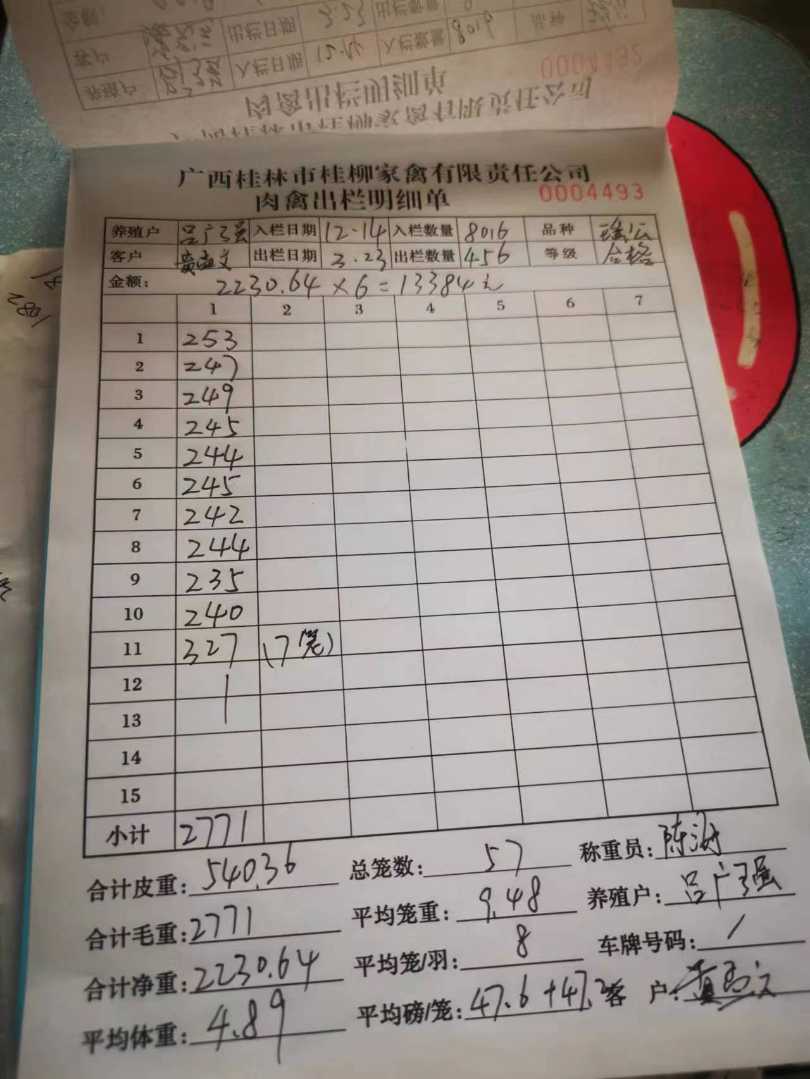 肉禽出栏明细单
0004492
广西桂林市桂柳家禽有限责任公司
肉禽出栏明细单 0004493
养殖户 吕广强 入栏日期 12.14 入栏数量 8016 品种 瑶公
客户 出栏日期 3.23 出栏数量 456 等级 合格
金额: 2230.64 × 6 = 13384元
1 2 3 4 5 6 7
1 253
2 247
3 249
4 245
5 244
6 245
7 242
8 244
9 235
10 240
11 327 (7笼)
12
13
14
15
小计 2771
合计皮重: 540.36 总笼数: 57 称重员: 陈海
合计毛重: 2771 平均笼重: 9.48 养殖户: 吕广强
合计净重: 2230.64 平均笼/羽: 8 车牌号码: /
平均体重: 4.89 平均磅/笼: 47.6+47.2 客户: